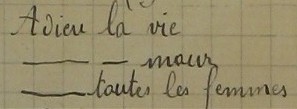 Adieu la vie
—— — mour
—— toutes les femmes